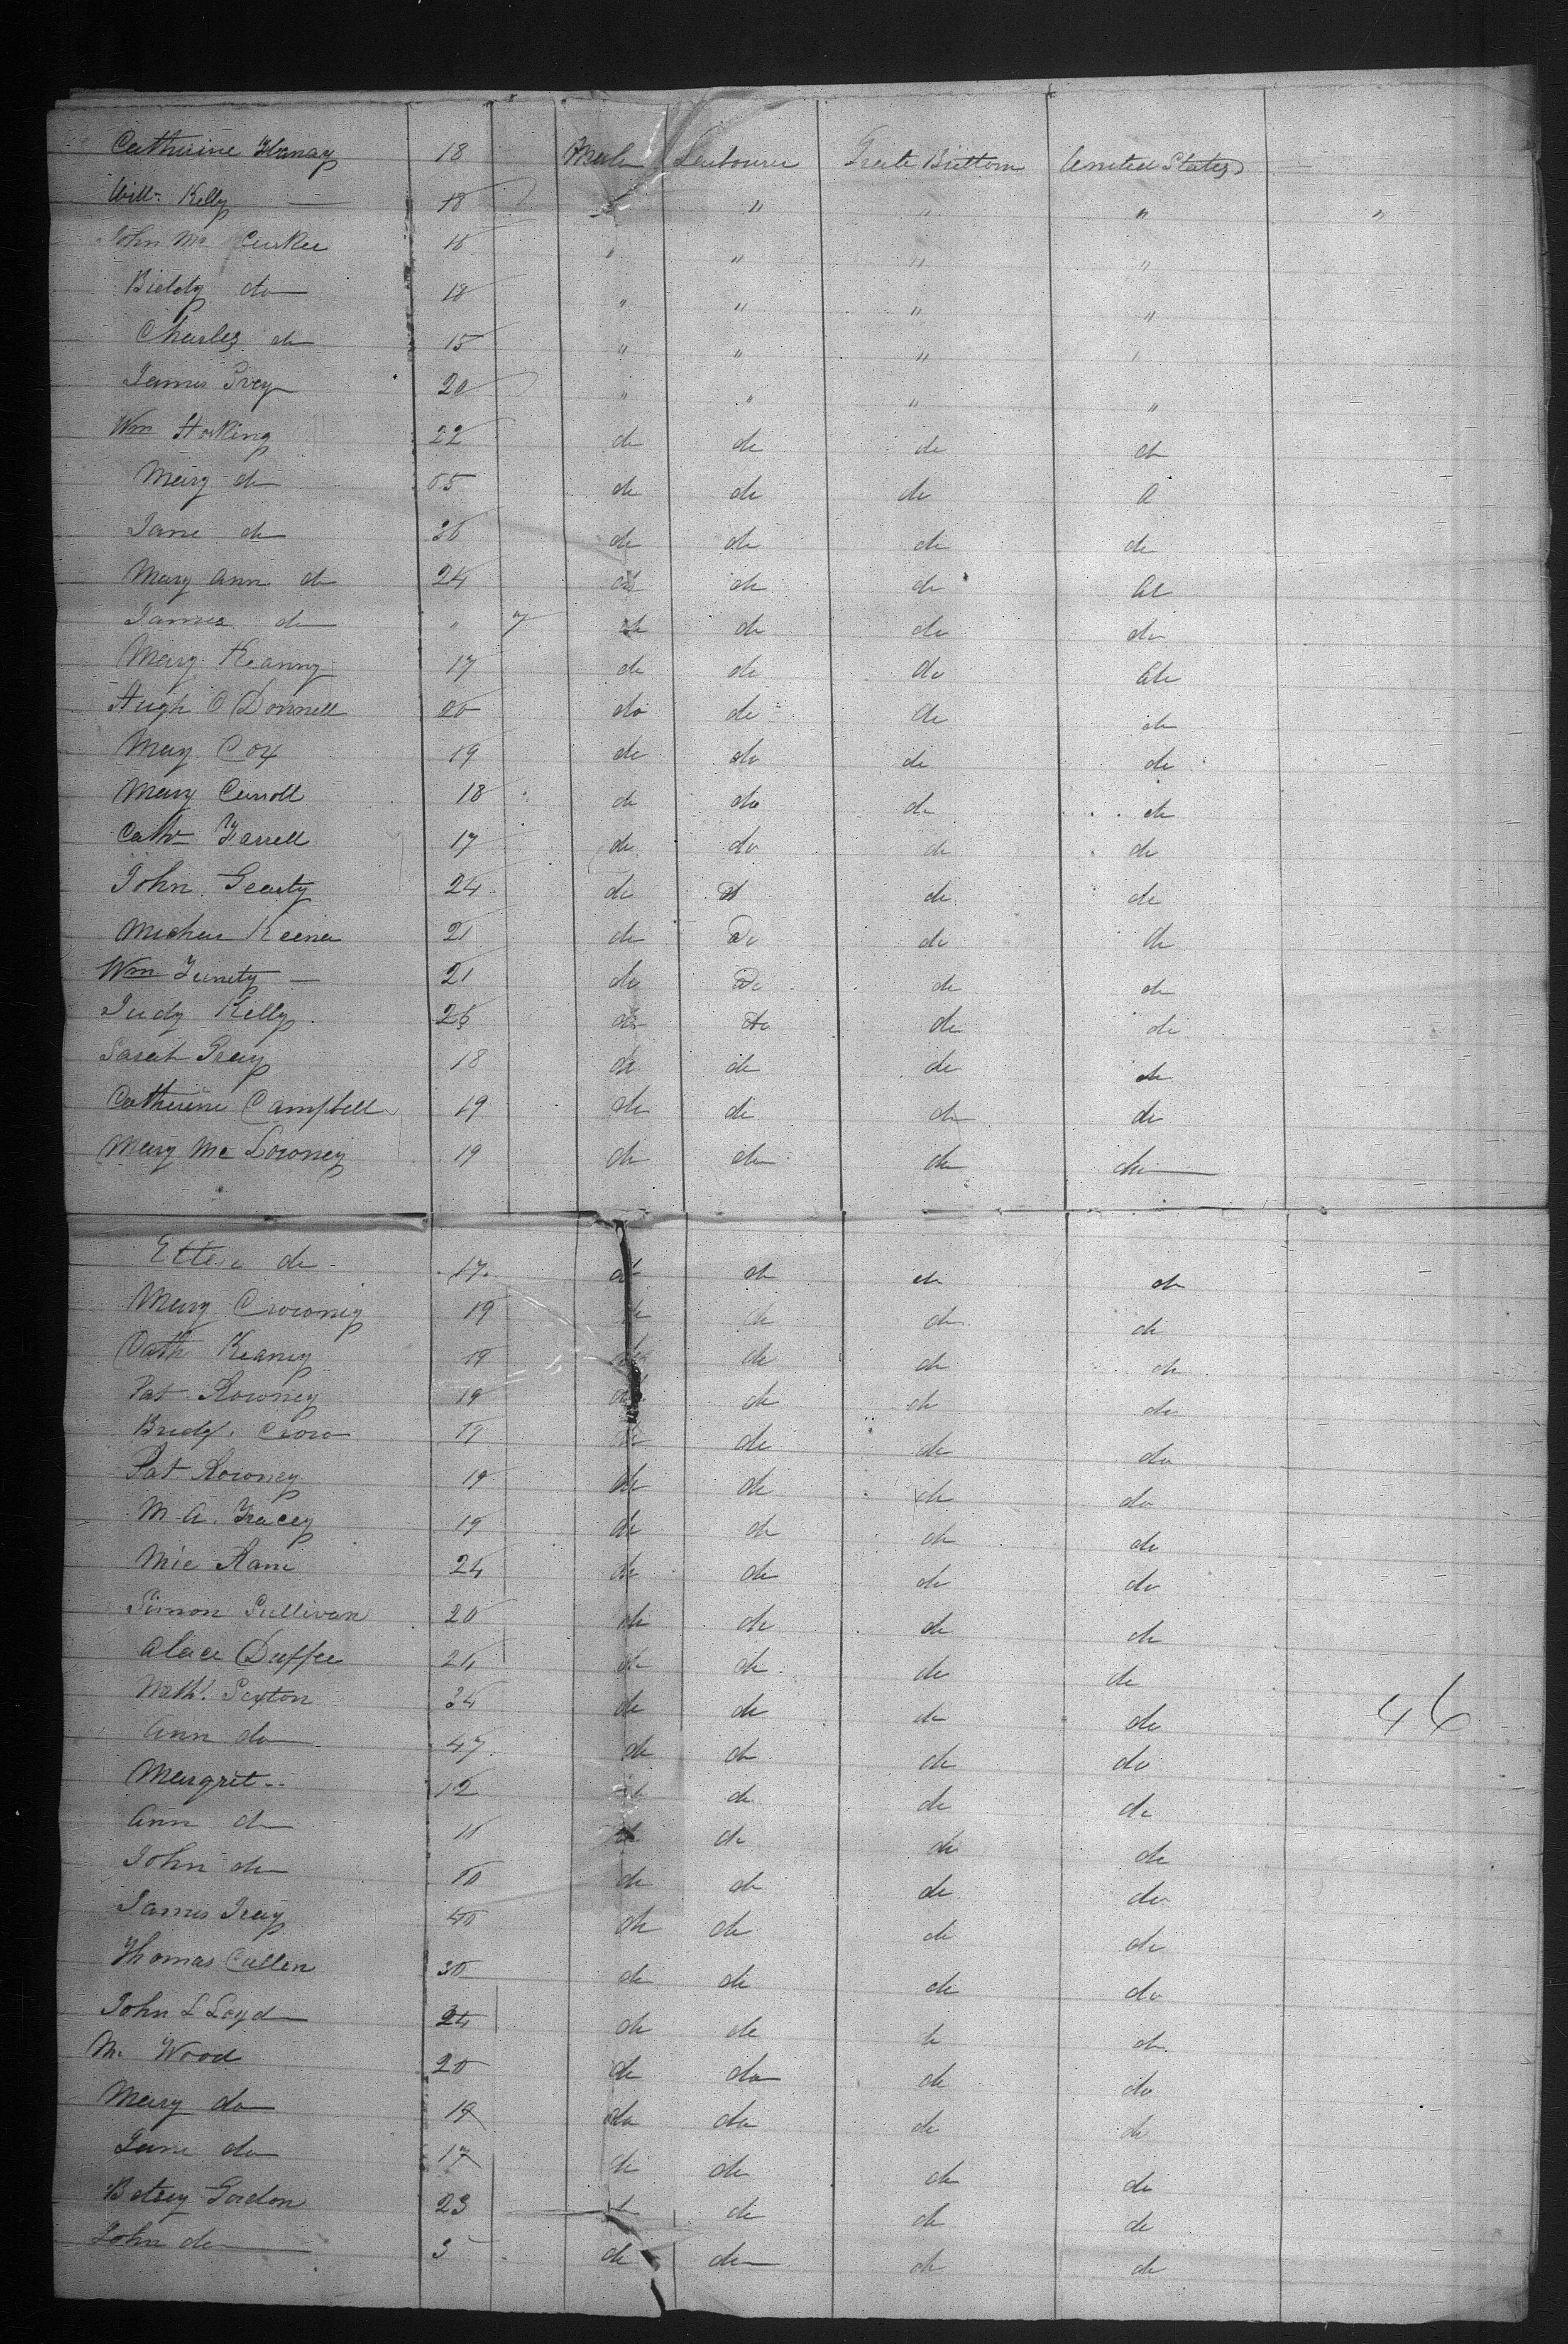 Catharine Flanay 18 Male Labourer Greate Brittorn United States
Willm Kelly — 18 " " " " "
John Mc Cusker 16 " " " "
Biddy do 18 " " " "
Charles do 15 " " " "
James Grey 20 " " " "
Wm Hosking 22 do do do do
Mary do 55 do do do do
Jane do 36 do do do do
Mary Ann do 24 do do do do
James do " 7 do do do do
Mary Keanny 17 do do do do
Hugh O Donnell 20 do do do do
Mary Cox 19 do do do do
Mary Carroll 18 do do do do
Cath Farrell 17 do do do do
John Gearty 24 do do do do
Michal Keena 21 do Do do do
Wm Funety — 21 do Do do do
Judy Kelly 26 do do do do
Sarah Gray 18 do do do do
Catherine Campbell 19 do do do do
Mary Mc Lowney 19 do do do do
Ellen do 17 do do do do
Mary Crowney 19 do do do do
Cath Keaney 19 do do do do
Pat Rowney 19 do do do do
Bridgt Crow 19 do do do do
Pat Rowney 19 do do do do
M A. Tracey 19 do do do do
Mic Kane 24 do do do do
Simon Sullivan 20 do do do do
Alace Duffee 24 do do do do
Nathl Sexton 34 do do do do 46
Ann do 47 do do do do
Margret " 12 do do do do
Ann do 11 do do do do
John do 10 do do do do
James Gray 40 do do do do
Thomas Cullen 30 do do do do
John L Loyd 24 do do do do
Mc Wood 20 do do do do
Mary do 19 do do do do
Jane do 17 do do do do
Betsey Gordon 23 do do do do
John do 3 do do do do